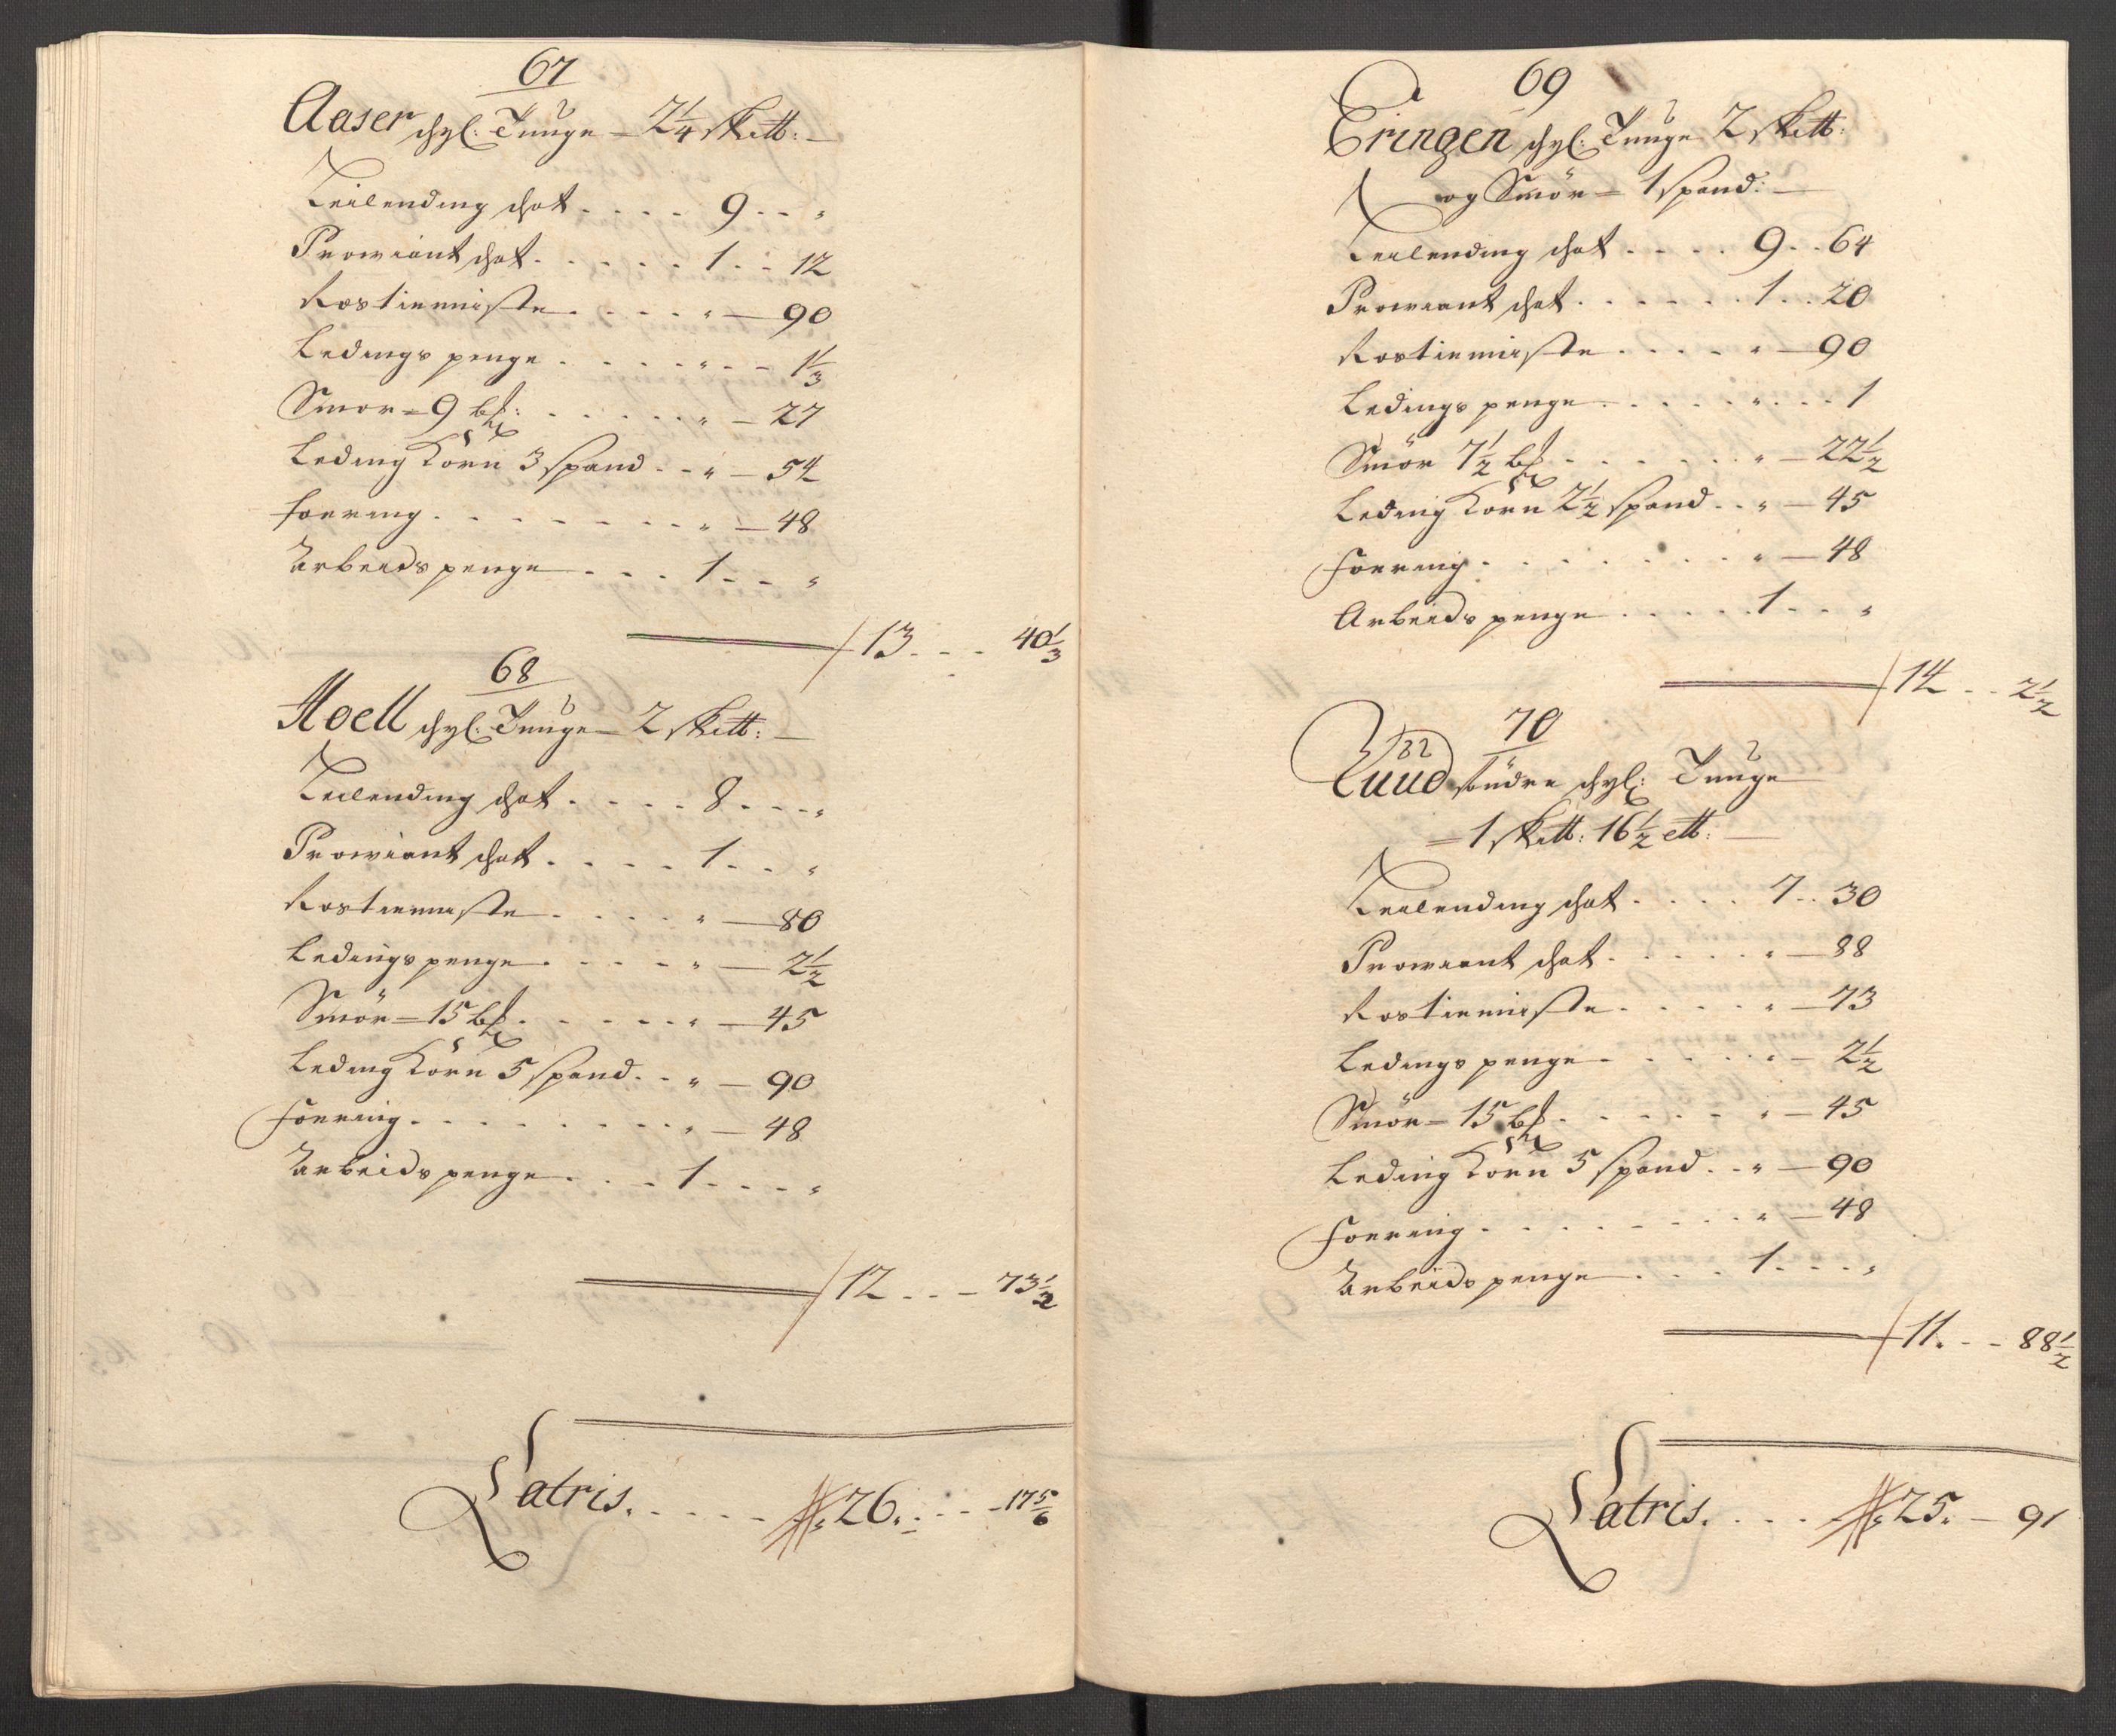 67
Aaser schyl: Tunge — 2 1/4 skett: —
Leilending skat . . . . 9 . . „
Proviant skat . . . . . . 1 . . 12
Rostieniste . . . . . „ — 90
Ledings penge . . . . . „ . . 1 1/3
Smør — 9 b℔: . . . . . . „ — 27
Leding Korn 3 spand . . „ — 54
Foering . . . . . . . . „ — 48
Arbeids penge . . . 1 . . „
13 . . . 40 1/3
68
Moell schyl: Tunge — 2 skett: —
Leilending skat . . . . 8 . . . „
Proviant skat . . . . 1 . . „
Rostieniste . . . . „ — 80
Ledings penge . . . . „ — 2 1/2
Smör — 15 b℔ . . . . . „ — 45
Leding Korn 5 spand . . „ — 90
Foering . . . . . . . . „ — 48
Arbeids penge . . . 1 . . . „
12 . . . 73 1/2
Latris . . . . . 26 . . . . 17 5/6
69
Eringen schyl: Tunge 2 skett:
og Smör — 1 spand: —
Leilending skat . . . . 9 . . 64
Proviant skat . . . . . . 1 . . 20
Rostieniste . . . . . „ — 90
Ledings penge . . . . . „ . . . 1
Smör 7 1/2 b℔ . . . . . . „ — 22 1/2
Leding Korn 2 1/2 spand . . „ — 45
Foering . . . . . . . . „ — 48
Arbeids penge . . . . . 1 . . „
14 . . 2 1/2
70
Ruud söndre schyl: Tunge
= 1 skett: 16 1/2 ett: —
Leilending skat . . . . 7 . . 30
Proviant skat . . . . . „ — 88
Rostieniste . . . . . „ — 73
Ledings penge . . . . . „ — 2 1/2
Smör — 15 b℔ . . . . . . „ — 45
Leding Korn 5 spand . . „ — 90
Foering . . . . . . . . „ — 48
Arbeids penge . . . 1 . . . „
11 . . . 88 1/2
Latris . . . . 25 . — 91